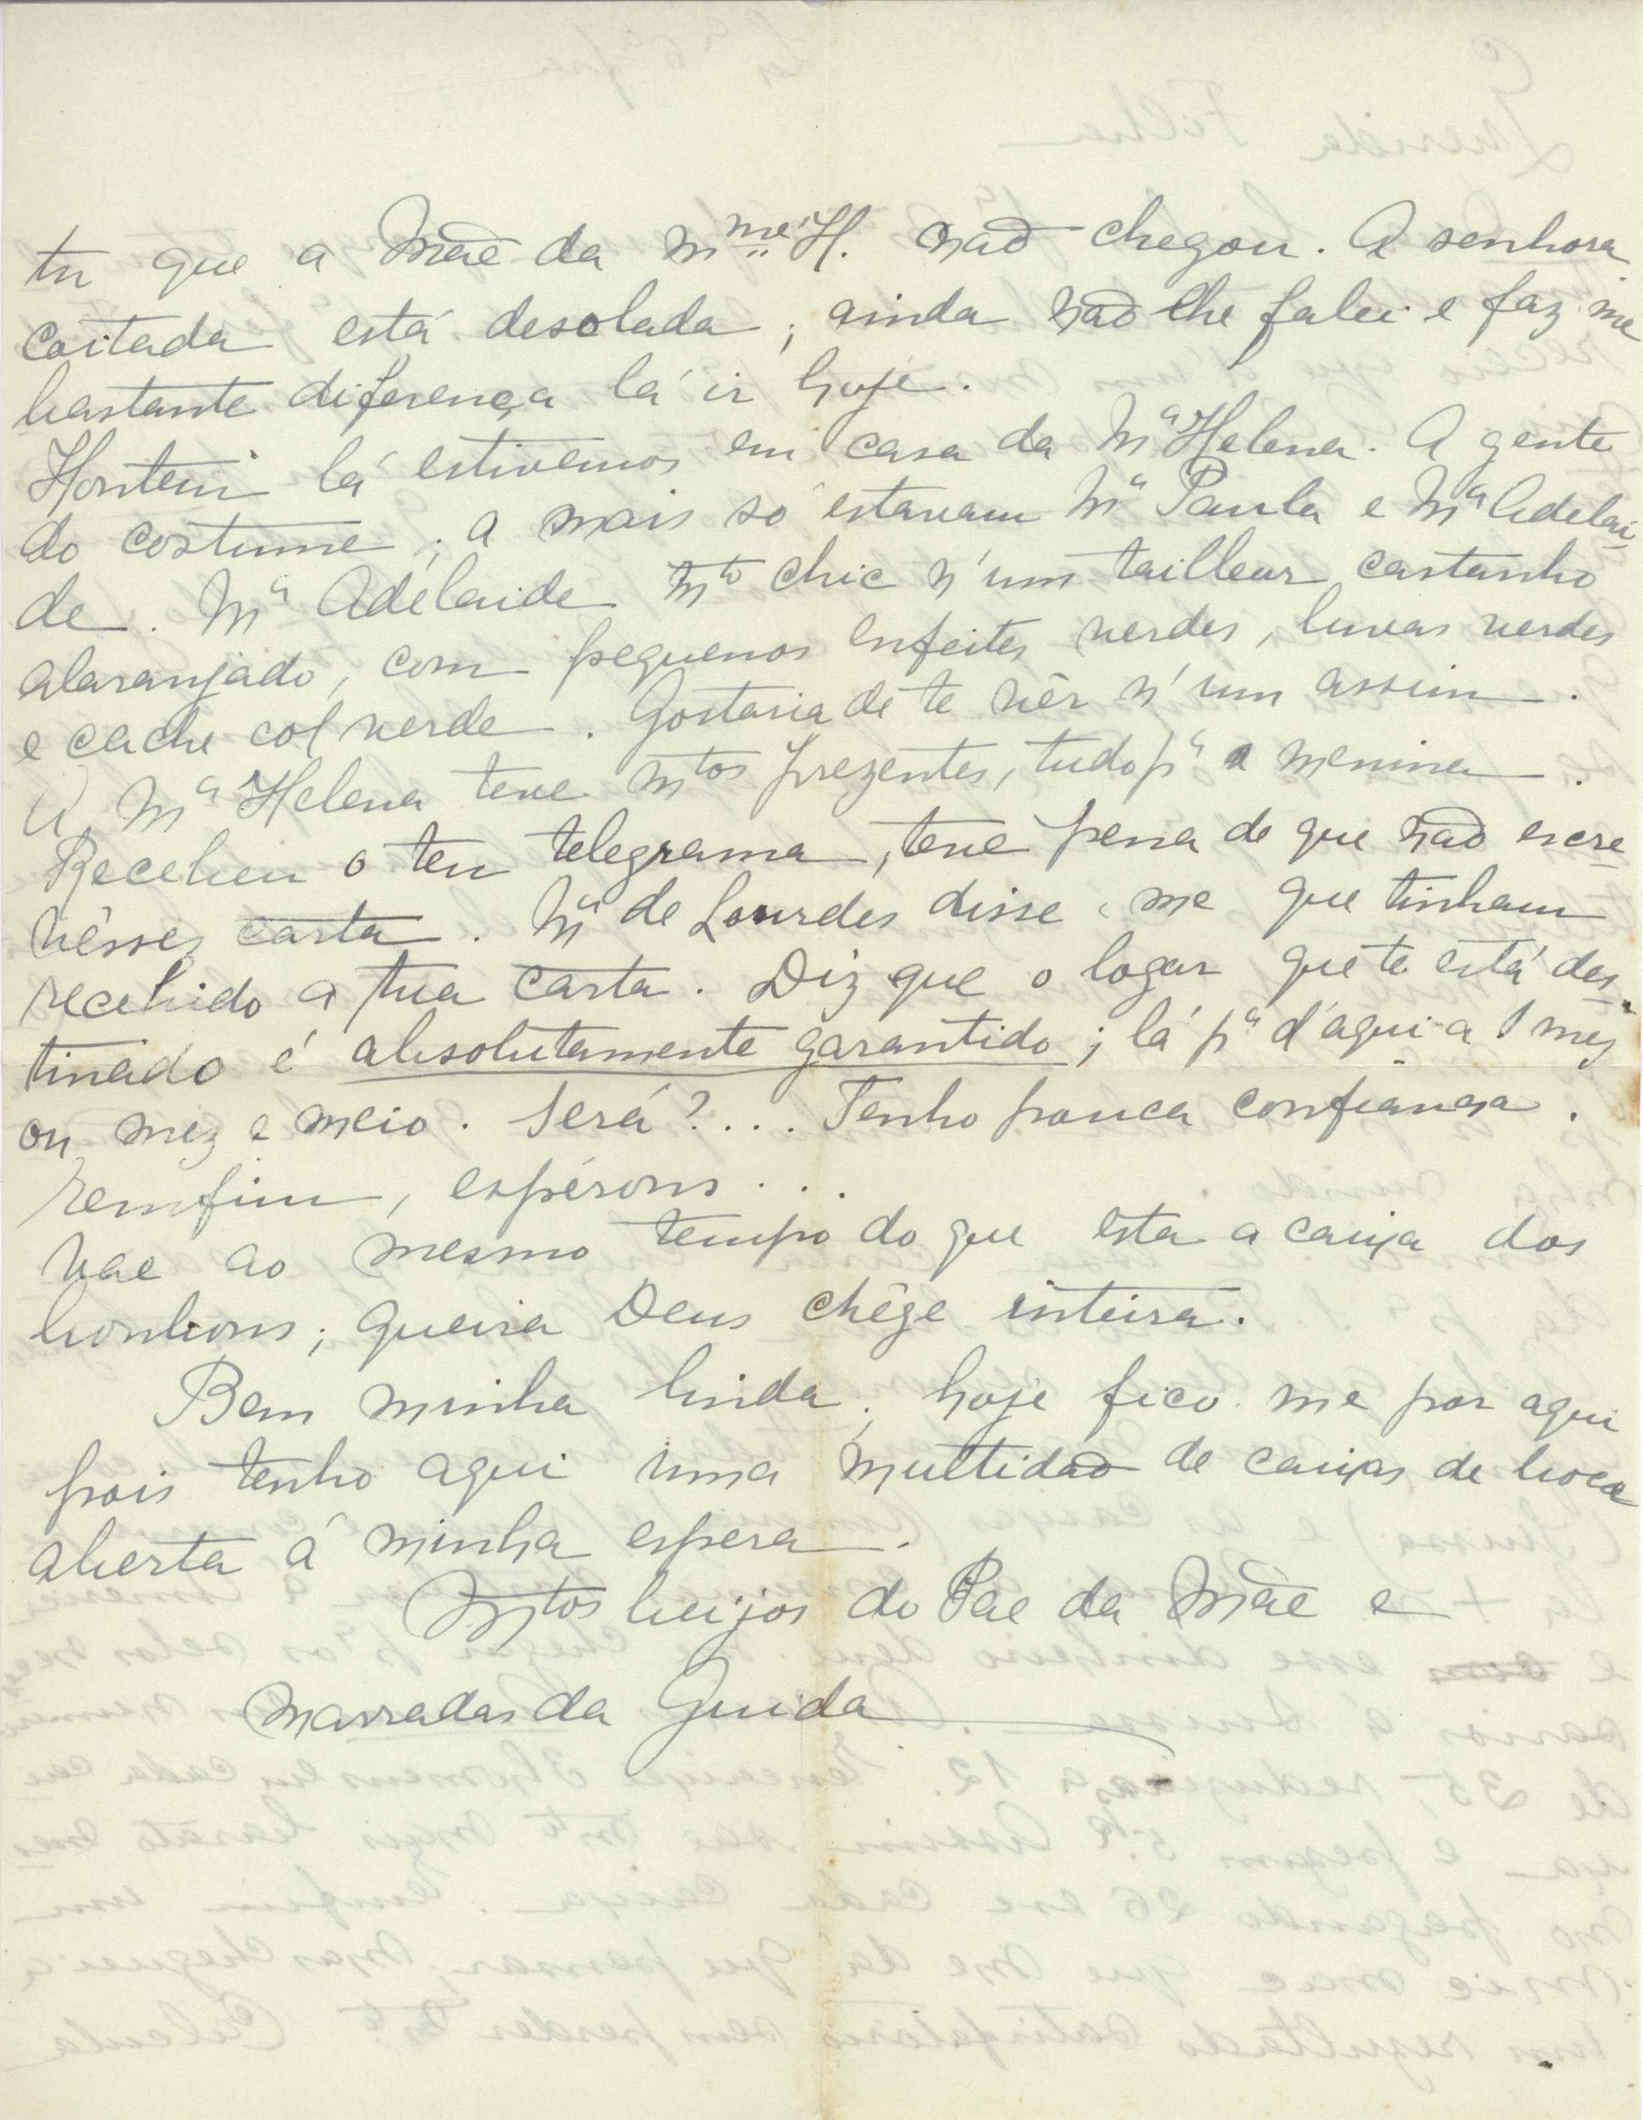 tu que a Mãe da Mme H. não chegou. A senhora
coitada está desolada; ainda não lhe falei e faz-me
bastante diferença lá ir hoje.
Hontem lá estivemos em casa da Mª Helena. A gente
do costume; a mais só estavam Mª Paula e Mª Adelai-
de. Mª Adelaide mto chic n'um tailleur castanho
alaranjado, com pequenos enfeites verdes, luvas verdes
e cache col verde. Gostaria de te vêr n'um assim.
A Mª Helena teve mtos prezentes, tudo pª a menina.
Recebeu o teu telegrama, teve pena de que não escre-
vêsses carta. Mª de Lourdes disse-me que tinham
recebido a tua carta. Diz que o logar que te está des-
tinado é absolutamente garantido; lá pª d'aqui a 1 mez
ou mez e meio. Será?... Tenho pouca confiança.
Remfim, espérons...
Vae ao mesmo tempo do que esta a caixa dos
bonbons; queira Deus chêge inteira.
Bem minha linda; hoje fico-me por aqui
pois tenho aqui uma multidão de caixas de boca
aberta á minha espera.
Mtos beijos do Pae da Mãe e
marradas da Guida